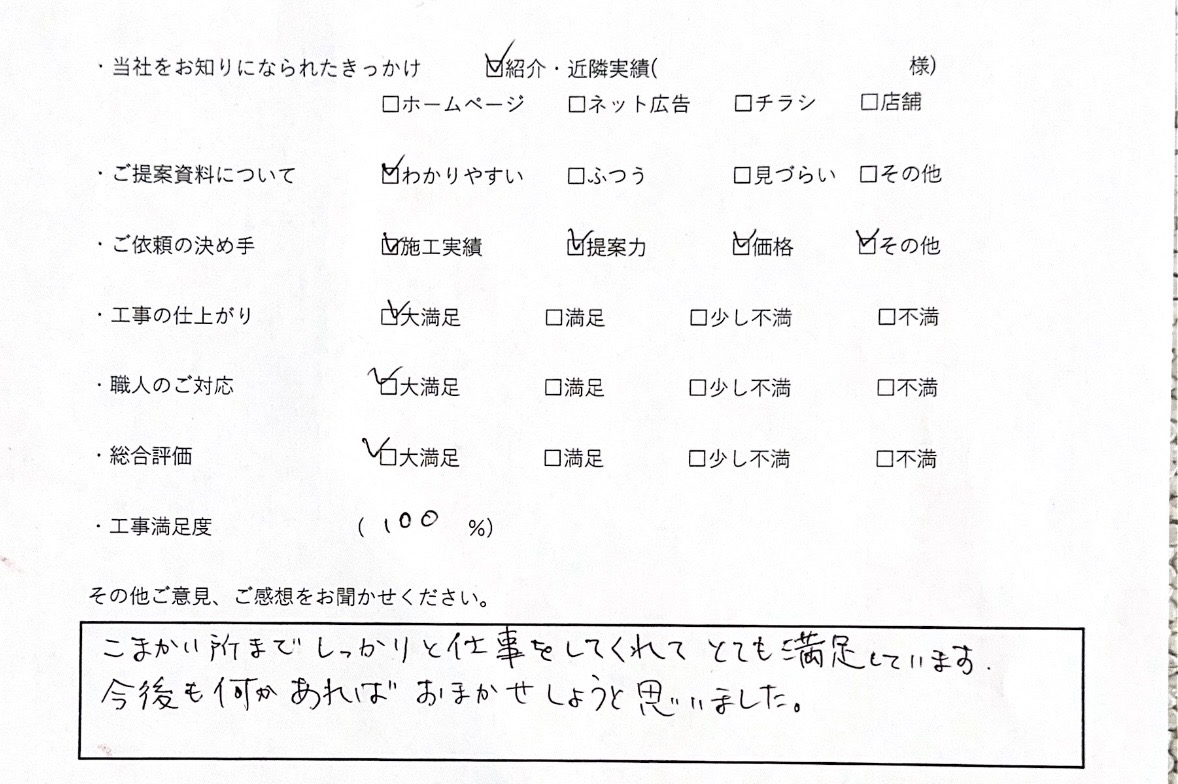 ・当社をお知りになられたきっかけ ☑紹介・近隣実績( 様)
☐ホームページ ☐ネット広告 ☐チラシ ☐店舗
・ご提案資料について ☑わかりやすい ☐ふつう ☐見づらい ☐その他
・ご依頼の決め手 ☑施工実績 ☑提案力 ☑価格 ☑その他
・工事の仕上がり ☑大満足 ☐満足 ☐少し不満 ☐不満
・職人のご対応 ☑大満足 ☐満足 ☐少し不満 ☐不満
・総合評価 ☑大満足 ☐満足 ☐少し不満 ☐不満
・工事満足度 ( 100 %)
その他ご意見、ご感想をお聞かせください。
こまかい所までしっかりと仕事をしてくれてとても満足しています.
今後も何かあればおまかせしようと思いました。